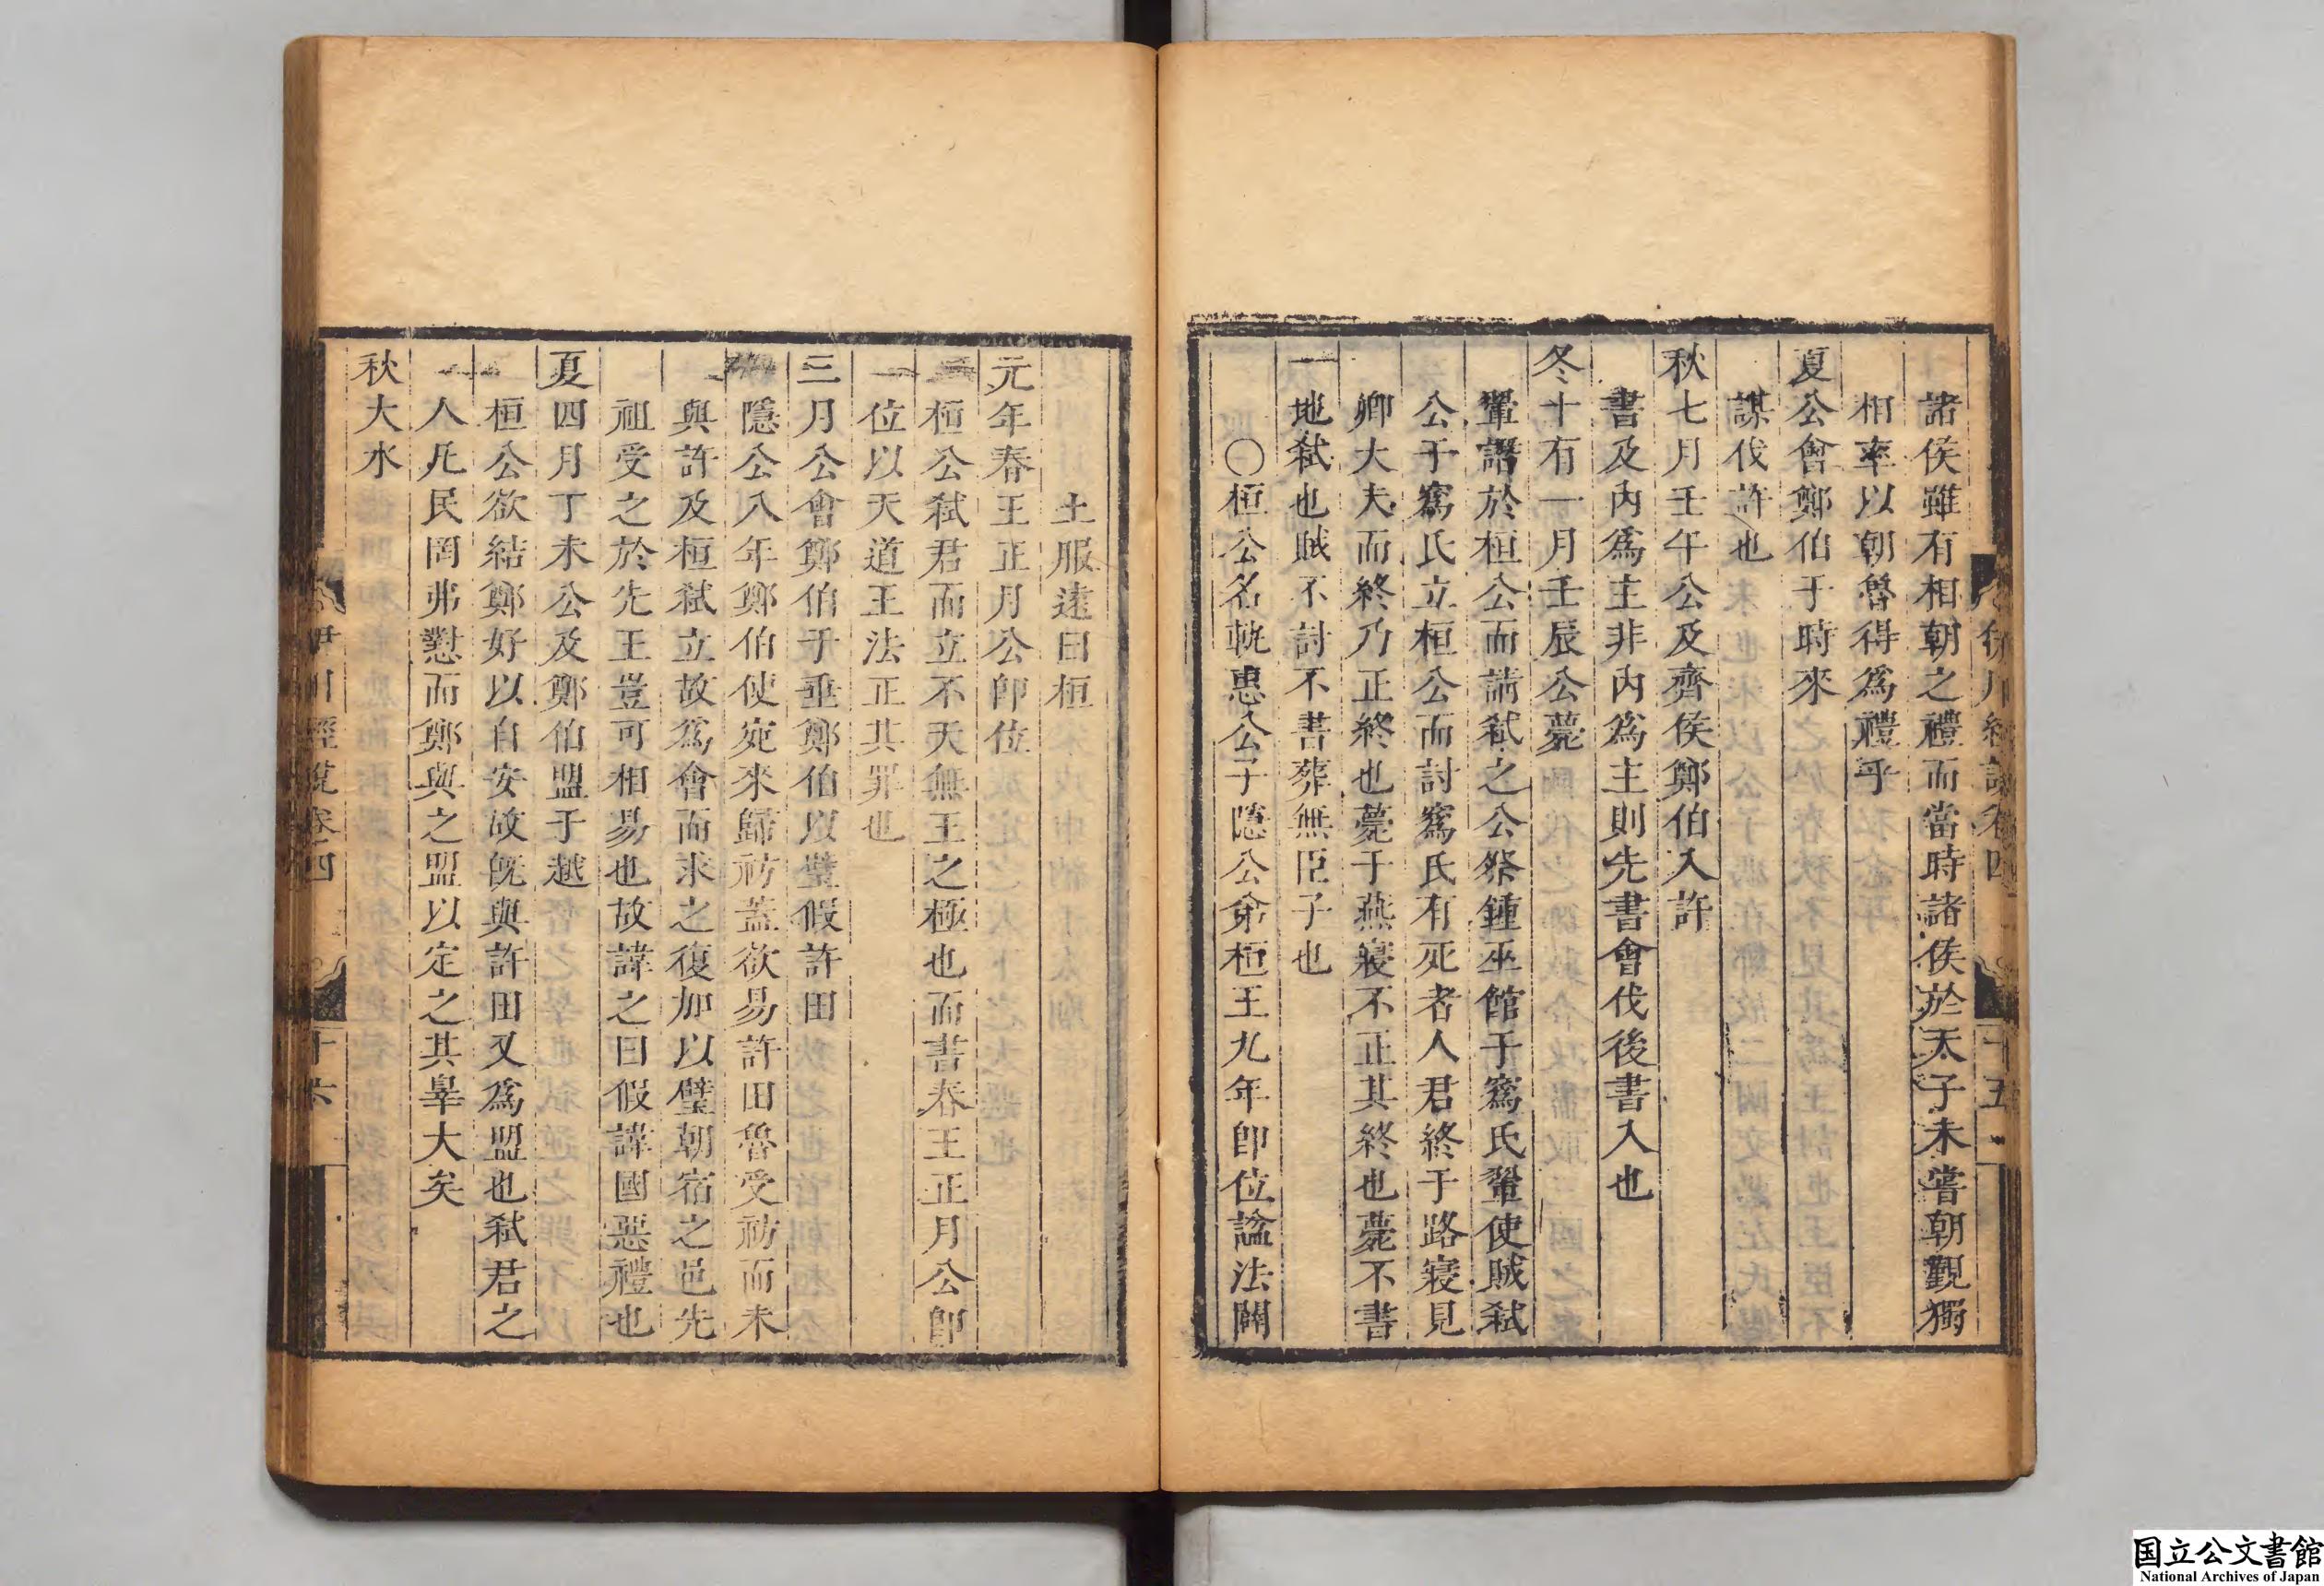 諸侯雖有相朝之禮而當時諸侯於天子未嘗朝覲獨
相率以朝魯得爲禮乎
夏公會鄭伯于時來
謀伐許也
秋七月壬午公及齊侯鄭伯入許
書及內爲主非內爲主則先書會伐後書入也
冬十有一月壬辰公薨
翬譖於桓公而請弒之公祭鍾巫館于寪氏翬使賊弒
公于寪氏立桓公而討寪氏有死者人君終于路寢見
卿大夫而終乃正終也薨于燕寢不正其終也薨不書
地弒也賊不討不書葬無臣子也
〇桓公名軌惠公子隱公弟桓王九年卽位諡法闢
土服遠曰桓
元年春王正月公卽位
桓公弒君而立不天無王之極也而書春王正月公卽
位以天道王法正其罪也
三月公會鄭伯于垂鄭伯以璧假許田
隱公八年鄭伯使宛來歸祊蓋欲易許田魯受祊而未
與許及桓弒立故爲會而求之復加以璧朝宿之邑先
祖受之於先王豈可相易也故諱之曰假諱國惡禮也
夏四月丁未公及鄭伯盟于越
桓公欲結鄭好以自安故旣與許田又爲盟也弒君之
人凡民罔弗懟而鄭與之盟以定之其辠大矣
秋大水
伊川經說卷四
十六
国立公文書館
National Archives of Japan